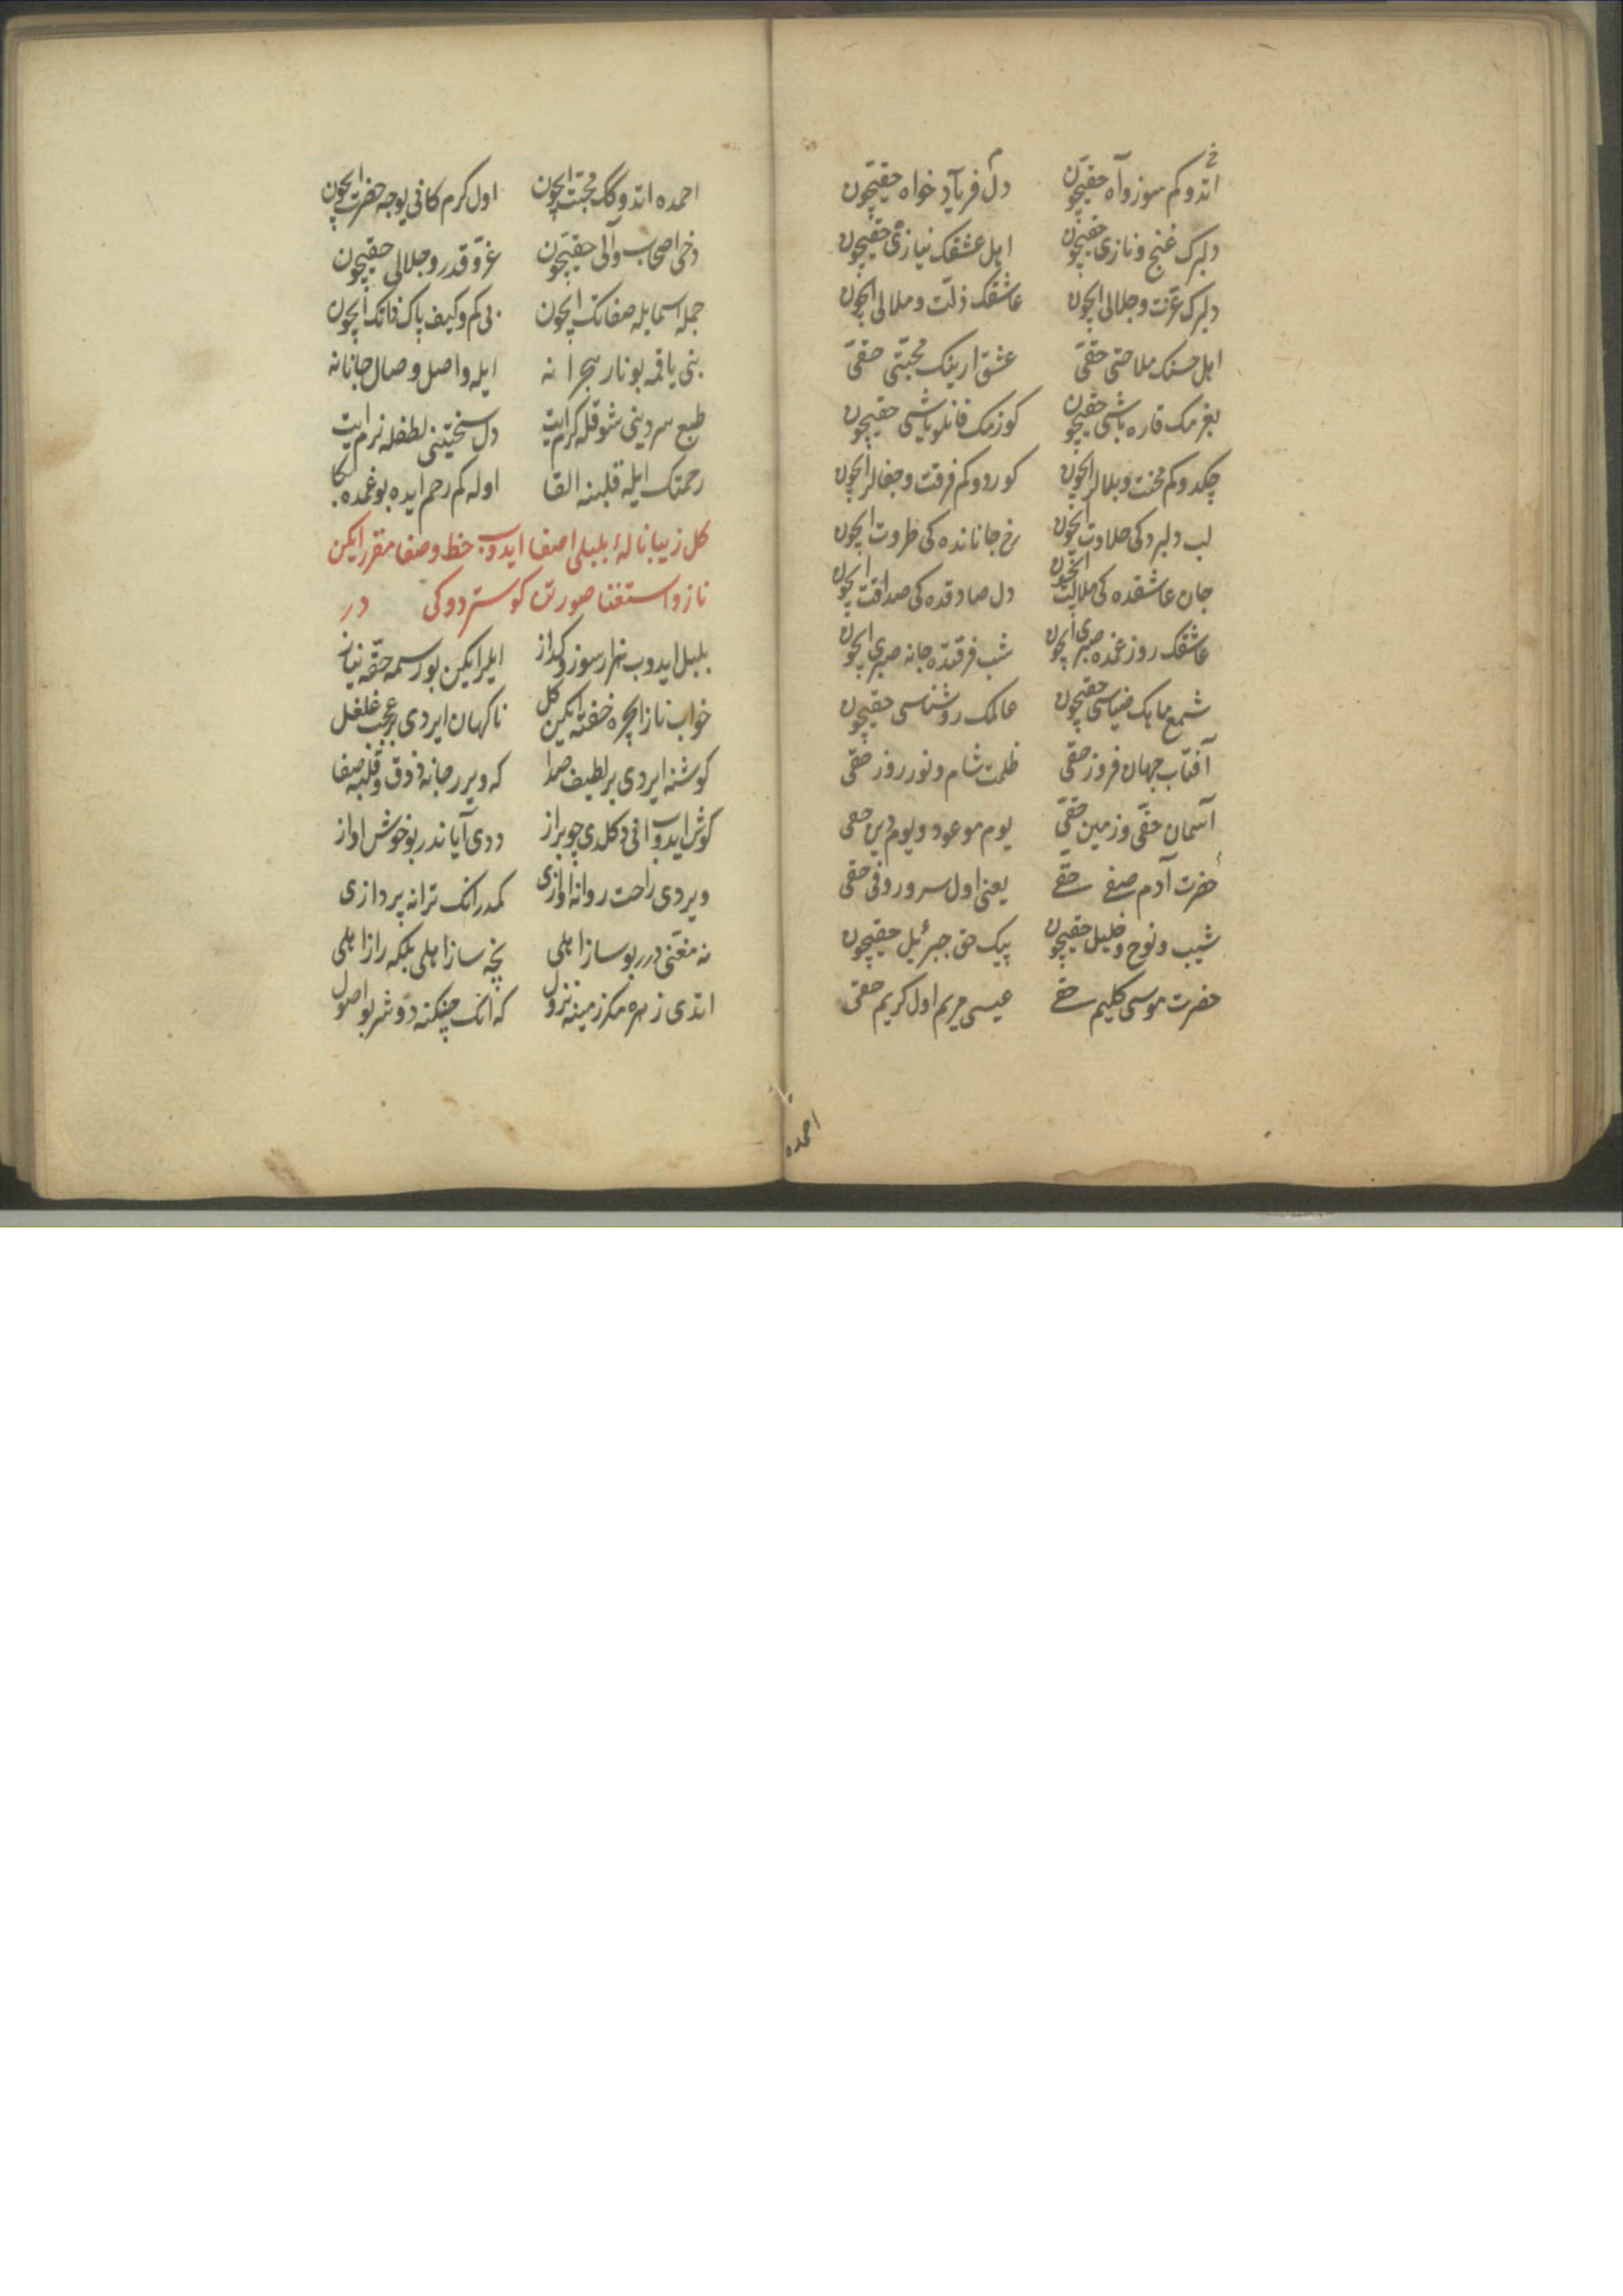 اتدوكم سوز و آه حقیچون دل فریاد خواه حقیچون
دلبرك غنج و نازی حقیچون اهل عشقك نیازی حقیچون
دلبرك عزت و جلالی ایچون عاشقك ذلت و ملالی ایچون
اهل حسنك ملاحتی حقی عشق ارینك محبتی حقی
بغرمك قاره باشی حقیچون كوزمك قانلو یاشی حقیچون
چكدوكم محنت و بلالر ایچون كوردوكم فرقت و جفالر ایچون
لب دلبردكی حلاوت ایچون رخ جاناندەكی طروات ایچون
جان عاشقدەكی ملالت ایچون دل صادقدەكی صداقت ایچون
عاشقك روز غمده صبری ایچون شب فرقتده جانه صبری ایچون
شمع ماهك ضیاسی حقیچون عالمك روشناسی حقیچون
آفتاب جهان فروز حقی ظلمت شام و نور روز حقی
آسمان حقی و زمین حقی یوم موعود و یوم دین حقی
حضرت آدم صفی حقی یعنی اول سرور وفی حقی
شیب و نوح و خلیل حقیچون پیك حق جبرئیل حقیچون
حضرت موسی كلیم حقی عیسی مریم اول كریم حقی
احمده
احمده اتدوكك محبت ایچون اول كرم كانی یوجه حضرت ایچون
دخی اصحاب و آلی حقیچون عز و قدر و جلالی حقیچون
جمله اسما یله صفاتك ایچون بی كم و كیف پاك ذاتك ایچون
بنی یاقمه بو نار هجرانه ایله واصل وصال جانانه
طبع سردینی شوقله كرم ایت دل سختینی لطفله نرم ایت
رحمتك ایله قلبنه القا اوله كم رحم ایده بو غمده بكا
كل زیبا نالهٔ بلبلی اصغا ایدوب حظ و صفا مقرر ایكن
ناز و استغنا صورتن كوستردوكی در
بلبل ایدوب هزار سوز و كداز ایلر ایكن بو رسمه حقه نیاز
خواب ناز ایچره خفته ایكن كل ناكهان ایردی بر عجب غلغل
كوشنه ایردی بر لطیف صدا كه ویرر جانه ذوق و قلبه صفا
كوش ایدوب انی دكلدی چو بر از ددی آیا ندر بو خوش اواز
ویردی راحت روانه اوازی كمدر انك ترانه پردازی
نه مغنی درر بو ساز اهلی نجه ساز اهلی بلكه راز اهلی
اتدی زهره مكر زمینه نزول كه انك چنكنه دوشر بو اصول